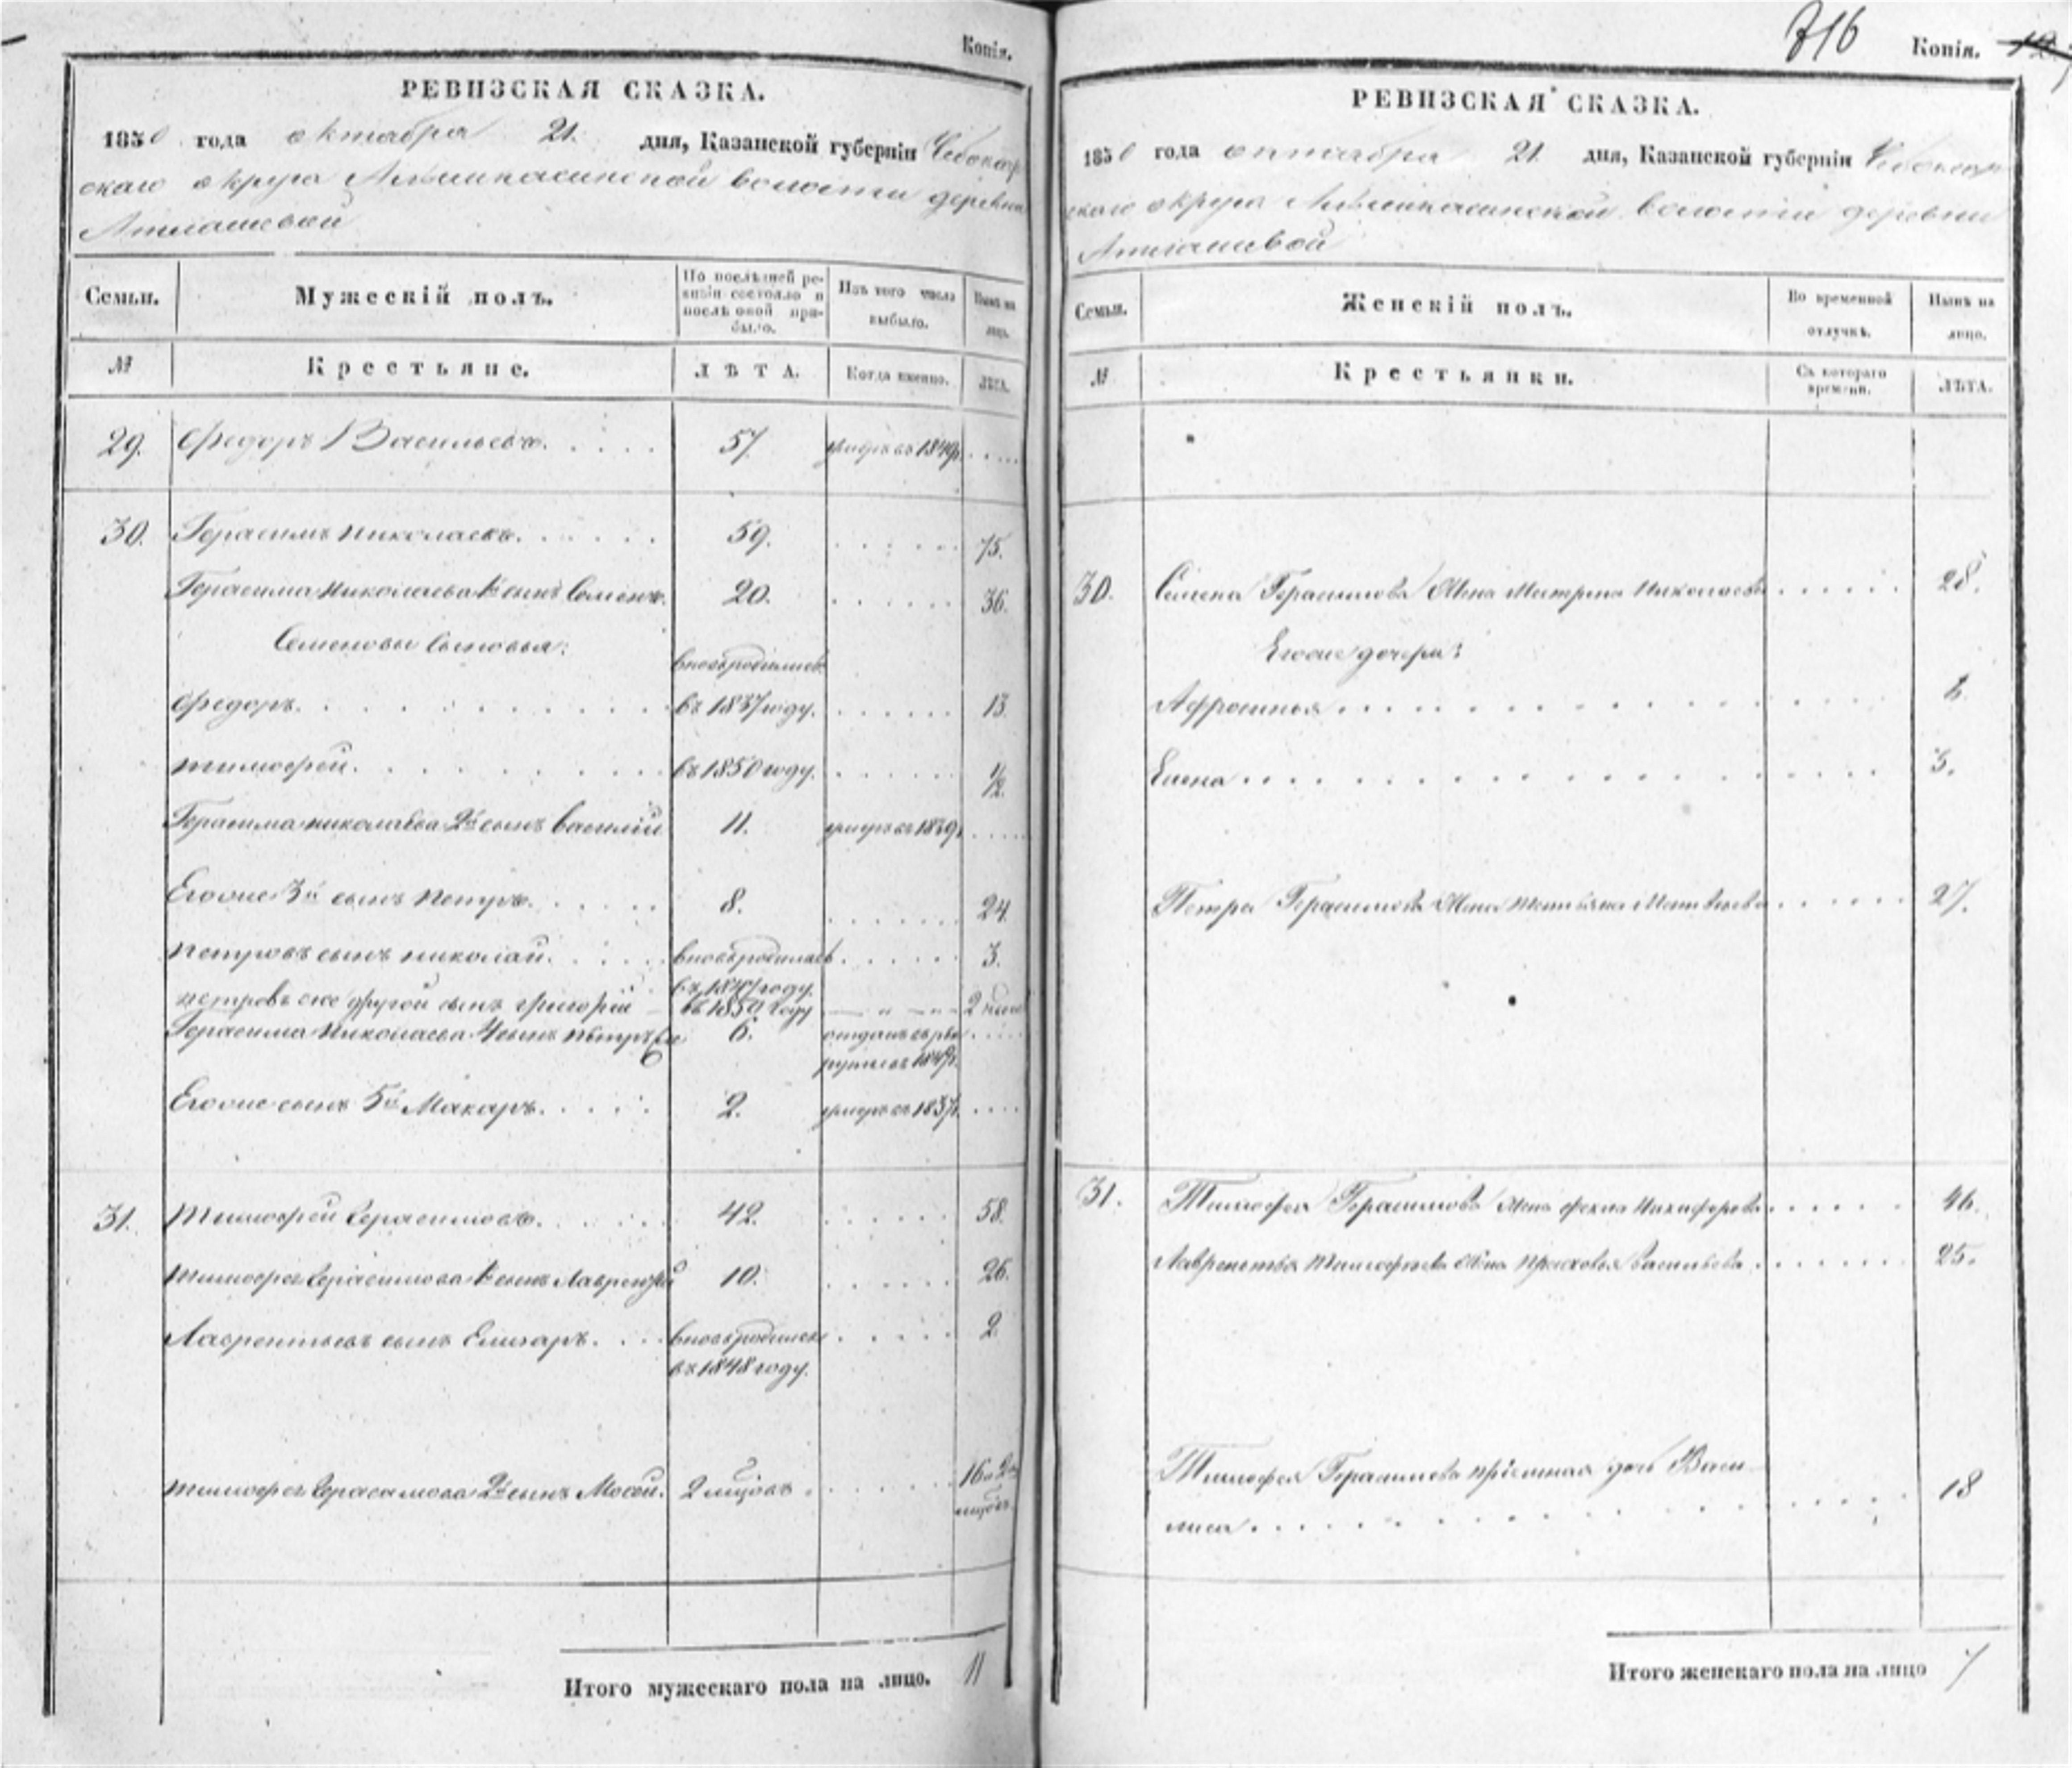 Копія.
РЕВИЗСКАЯ СКАЗКА.
1850 года октября 21. дня, Казанской губерніи Чебоксар
скаго округа волости деревни
Атлашевой
Семьи.
Мужескій полъ.
По послѣдней ре-
визіи состояло и
послѣ оной при-
было.
Изъ того числа
выбыло.
Нынѣ на
лицо.
№
Крестьяне.
ЛѢТА.
Когда именно.
ЛѢТА.
29. Федоръ Васильевъ. 57. умеръ въ 1849г.
30. Герасимъ Николаевъ. 59. 75.
Герасима Николаева 1й сынъ Семенъ. 20. 36.
Семеновы сыновья:
вновьродились
Федоръ. въ 1837 году. 13.
Тимофей. въ 1850 году. 1/2.
Герасима Николаева 2й сынъ Василій 11. умеръ въ 1839г.
Егоже 3й сынъ Петръ. 8. 24.
Петровъ сынъ Николай. вновьродился 3.
въ 1847 году.
Петровъ же другой сынъ Григорій въ 1850 году 2
Герасима Николаева 4 сынъ Петръ 6. отданъ въ рек
руты въ 1849г.
Егоже сынъ 5й Макаръ. 2. умеръ въ 1837г.
31. Тимофей Герасимовъ. 42. 58.
Тимофея Герасимова 1й сынъ Лаврентій 10. 26.
Лаврентьевъ сынъ Елизаръ. вновьродился 2.
въ 1848 году.
Тимофея Герасимова 2й сынъ Мосей. 2 мѣцовъ. 16 и 2
мѣцов.
Итого мужескаго пола на лицо. 11
716
Копія.
РЕВИЗСКАЯ СКАЗКА.
1850 года октября 21. дня, Казанской губерніи Чебоксар
скаго округа волости деревни
Атлашевой
Семьи.
Женскій полъ.
Во временной
отлучкѣ.
Нынѣ на
лицо.
№
Крестьянки.
Съ котораго
времени.
ЛѢТА.
30. Семена Герасимова жена Матрена Николаева 28.
Егоже дочери:
Афросинья
Елена 3.
Петра Герасимова жена Татьяна Матвѣева 27.
31. Тимофея Герасимова жена Фекла Никифорова 46.
Лаврентья Тимофеева жена Прасковья Васильева 25.
Тимофея Герасимова пріемная дочь Васи
лиса 18
Итого женскаго пола на лицо 7